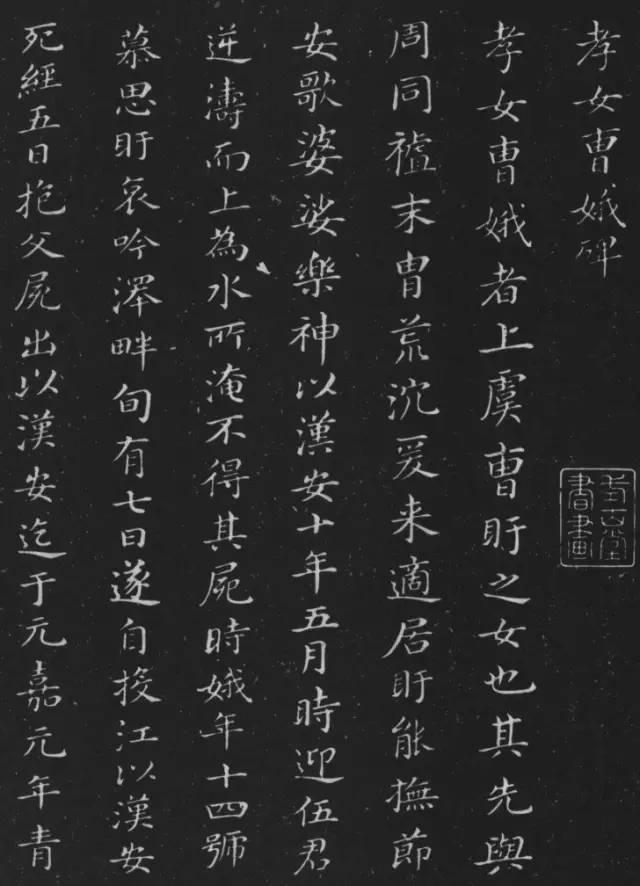 孝女曹娥碑
孝女曹娥者上虞曹盱之女也其先與
周同禋末胄荒沉爰来適居盱能撫節
安歌婆娑樂神以漢安十年五月時迎伍君
逆濤而上為水所淹不得其屍時娥年十四號
慕思盱哀吟澤畔旬有七日遂自投江以漢安
死經五日抱父屍出以漢安迄于元嘉元年青
書畫